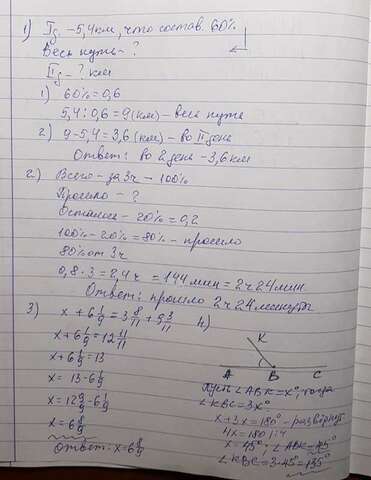 1) I д - 5,4 км, что состав. 60%
Весь путь - ?
II д - ? км
1) 60% = 0,6
5,4 : 0,6 = 9 (км) - весь путь
2) 9 - 5,4 = 3,6 (км) - во II день
Ответ: во 2 день - 3,6 км
2) Всего - за 3ч - 100%
Прошло - ?
Осталось - 20% = 0,2
100% - 20% = 80% - прошло
80% от 3ч
0,8 · 3 = 2,4 ч = 144 мин = 2ч 24 мин
Ответ: прошло 2ч 24 минуты
3) x + 6 1/9 = 3 8/11 + 9 3/11
x + 6 1/9 = 12 11/11
x + 6 1/9 = 13
x = 13 - 6 1/9
x = 12 9/9 - 6 1/9
x = 6 8/9
Ответ: x = 6 8/9
4)
K
A B C
Пусть ∠ABK = x°, тогда
∠KBC = 3x°
x + 3x = 180° - развёрнут
4x = 180 : 4
x = 45°; ∠ABK = 45°
∠KBC = 3·45° = 135°